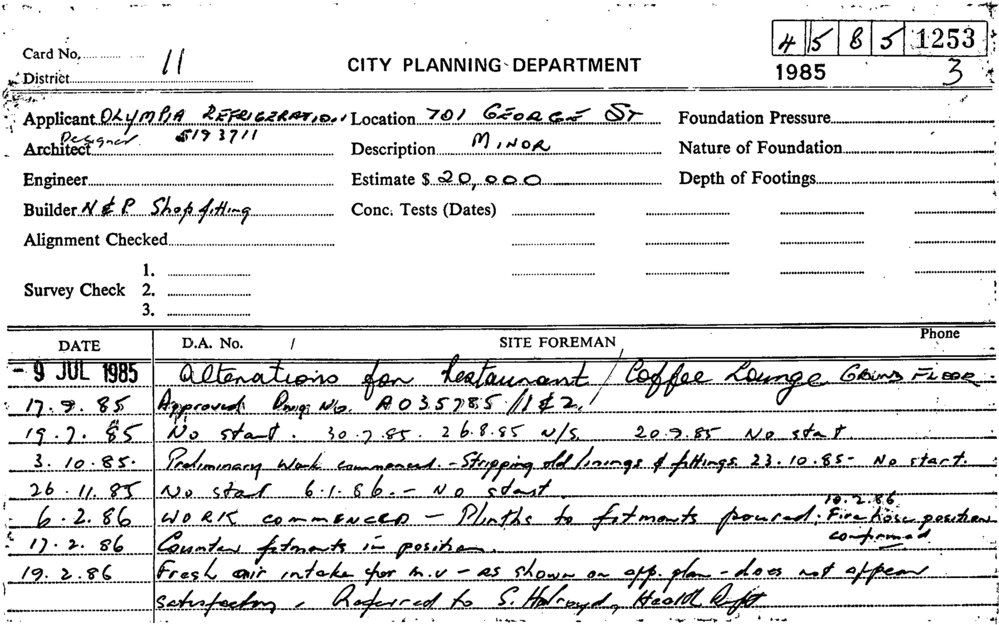 45 85 1253
Card No. 11
CITY PLANNING DEPARTMENT
1985 3
District
Applicant OLYMPIA REFRIGERATION Location 701 GEORGE ST Foundation Pressure
Designer 5193711
Architect Description MINOR Nature of Foundation
Engineer Estimate $ 20,000 Depth of Footings
Builder N & P Shopfitting Conc. Tests (Dates)
Alignment Checked
1.
Survey Check 2.
3.
DATE D.A. No. / SITE FOREMAN Phone
- 9 JUL 1985 Alterations for Restaurant / Coffee Lounge GROUND FLOOR.
17. 9. 85 Approved Dwgs No. A035785 /1 & 2.
19. 7. 85 No start. 30.7.85. 26.8.85 N/S. 20.9.85 No start.
3. 10. 85. Preliminary work commenced. - Stripping old linings & fittings. 23.10.85 - No start.
26. 11. 85 No start 6.1.86. - No start.
10.2.86
6. 2. 86 WORK COMMENCED - Plinths to fitments poured. Fire hose position
confirmed
17. 2. 86 Counter fitments in position.
19. 2. 86 Fresh air intake for m.v - as shown on app. plan - does not appear
satisfactory. Referred to S. Holroyd, Health Dept